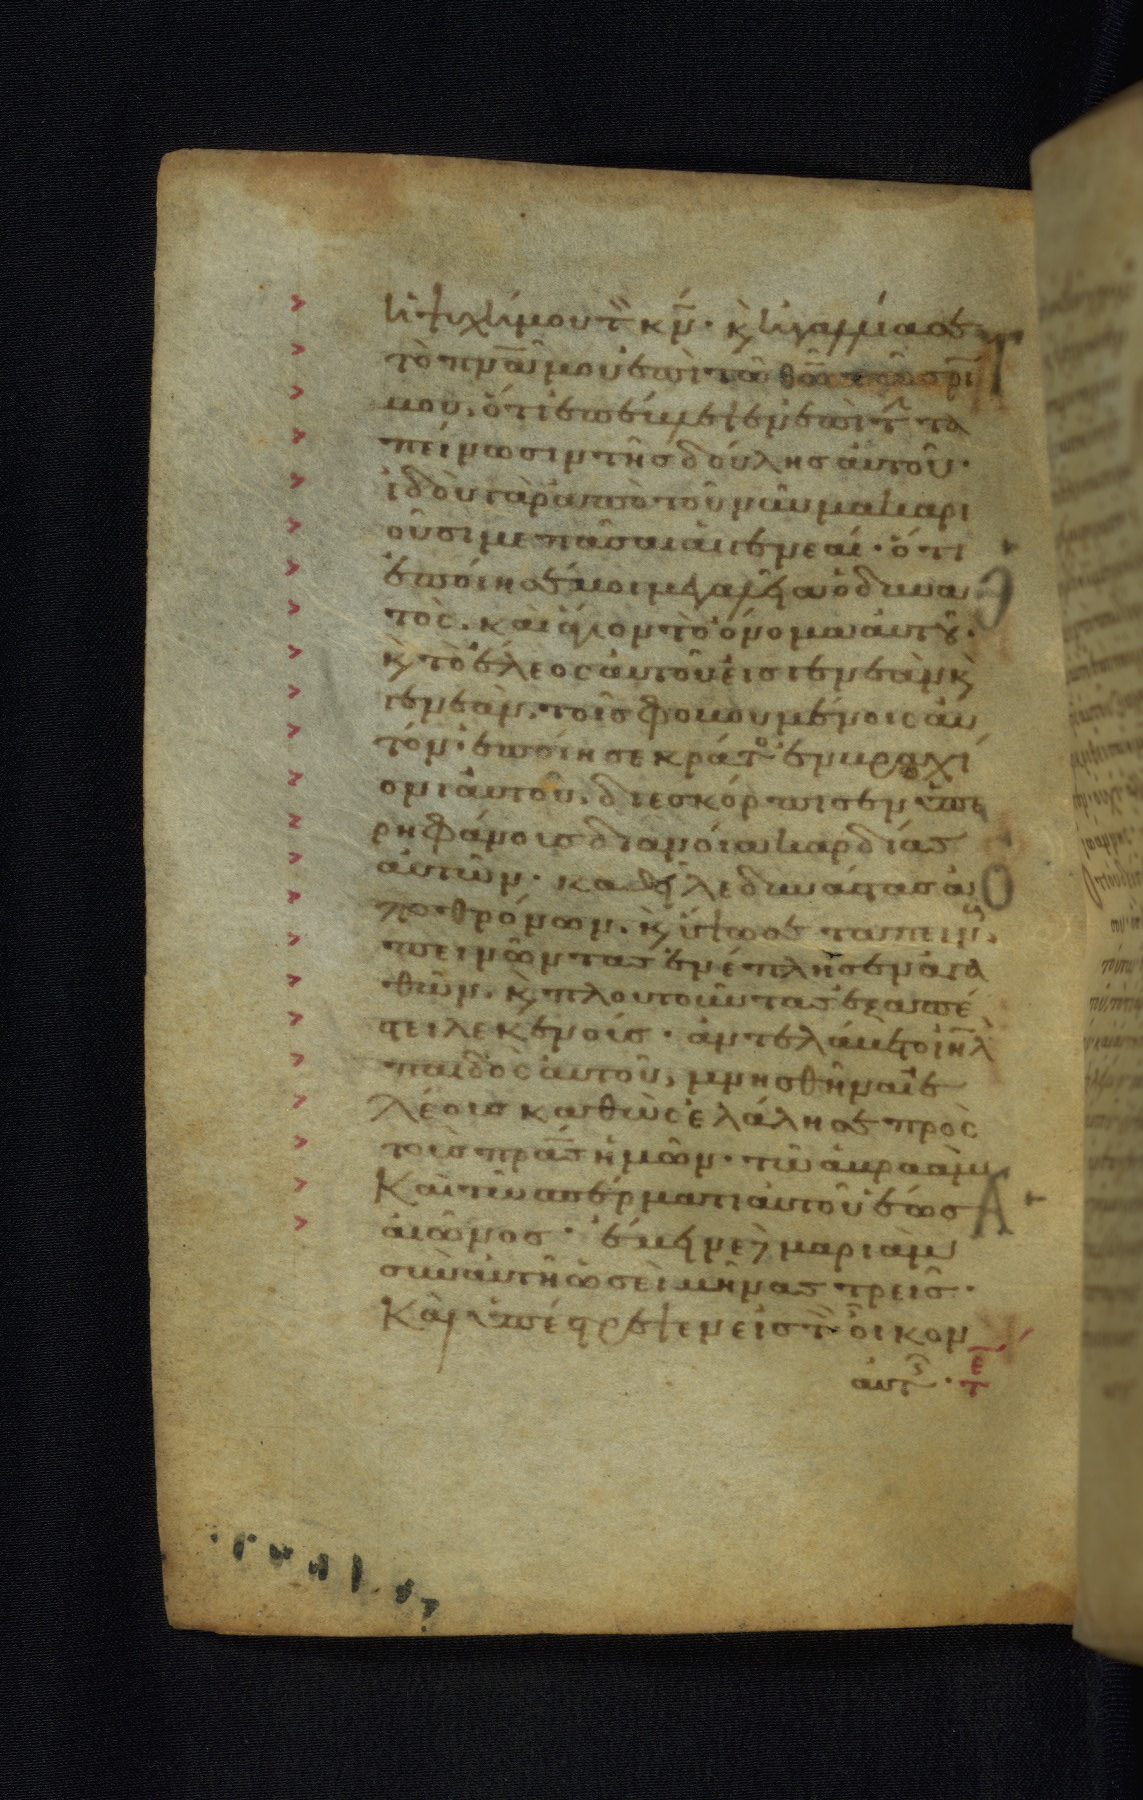 ἡ ψυχή μου τὸν κν̅· κ̀ ἠγαλλίασε
τὸ πνα̅ μου ἐπὶ τῶ θω̅ τῶ σρι̅
μου. ὅτι ἐπέβλεψεν ἐπὶ τὴν τα
πείνωσιν τῆς δούλης αὐτοῦ·
ἰδοὺ γὰρ ἀπὸ τοῦ νῦν μακαρι
οῦσι με πᾶσαι αἱ γενεαί· ὅτι
ἐποίησέ μοι μεγαλεῖα ὁ δυνα
τὸς. καὶ ἅγιον τὸ ὄνομα αὐτοῦ·
κ̀ τὸ ἔλεος αὐτοῦ εἰς γενεὰν κ̀
γενεὰν. τοῖς φοβουμένοις αὐ
τόν· ἐποίησε κράτος ἐν βραχί
ονι αὐτοῦ. διεσκόρπισεν ὑπε
ρηφάνοις διανοία καρδίας
αὐτῶν· καθεῖλε δυνάστας ἀ
πο θρόνων. κ̀ ὕψωσε ταπεινούς.
πεινῶντας ἐνέπλησεν ἀγα
θῶν. κ̀ πλουτοῦντας ἐξαπέ
στειλε κενούς· ἀντελάβετο ιη̅λ
παιδὸς αὐτοῦ, μνησθῆναι ἐ
λέους καθὼς ἐλάλησε πρὸς
τοὺς πρα̅ς ἡμῶν· τῶ ἀβραὰμ
Καὶ τῶ σπέρματι αὐτοῦ ἕως
αἰῶνος· ἔμεινε δὲ μαριὰμ
σὺν αὐτῆ ὡσεὶ μῆνας τρεῖς·
Καὶ ὑπέστρεψεν εἰς τὸν οἶκον
αὐτῆς· τε̅